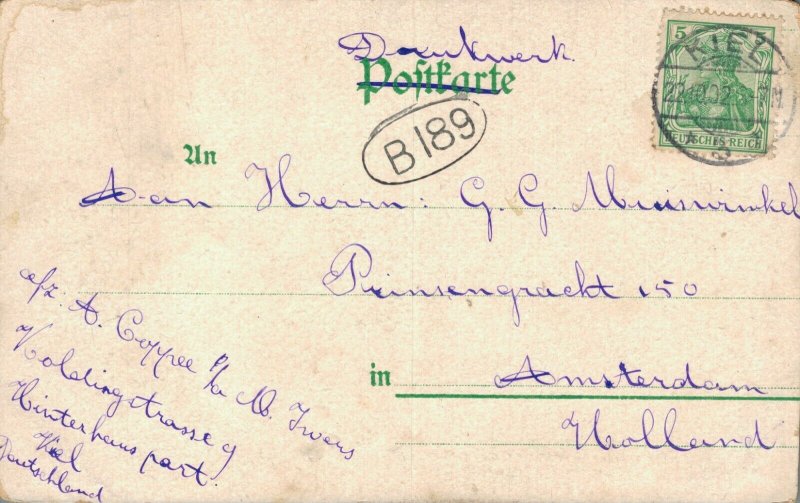 Drukwerk
Postkarte
5
KIEL
3
DEUTSCHES REICH
B189
An
Aan Herrn: G. G. Muiswinkel
Prinsengracht 150
in Amsterdam
Holland
afz: A. Coppee p/a M. Ivers
Koldingstrasse 9
Hinterhaus part.
Kiel
Deutschland